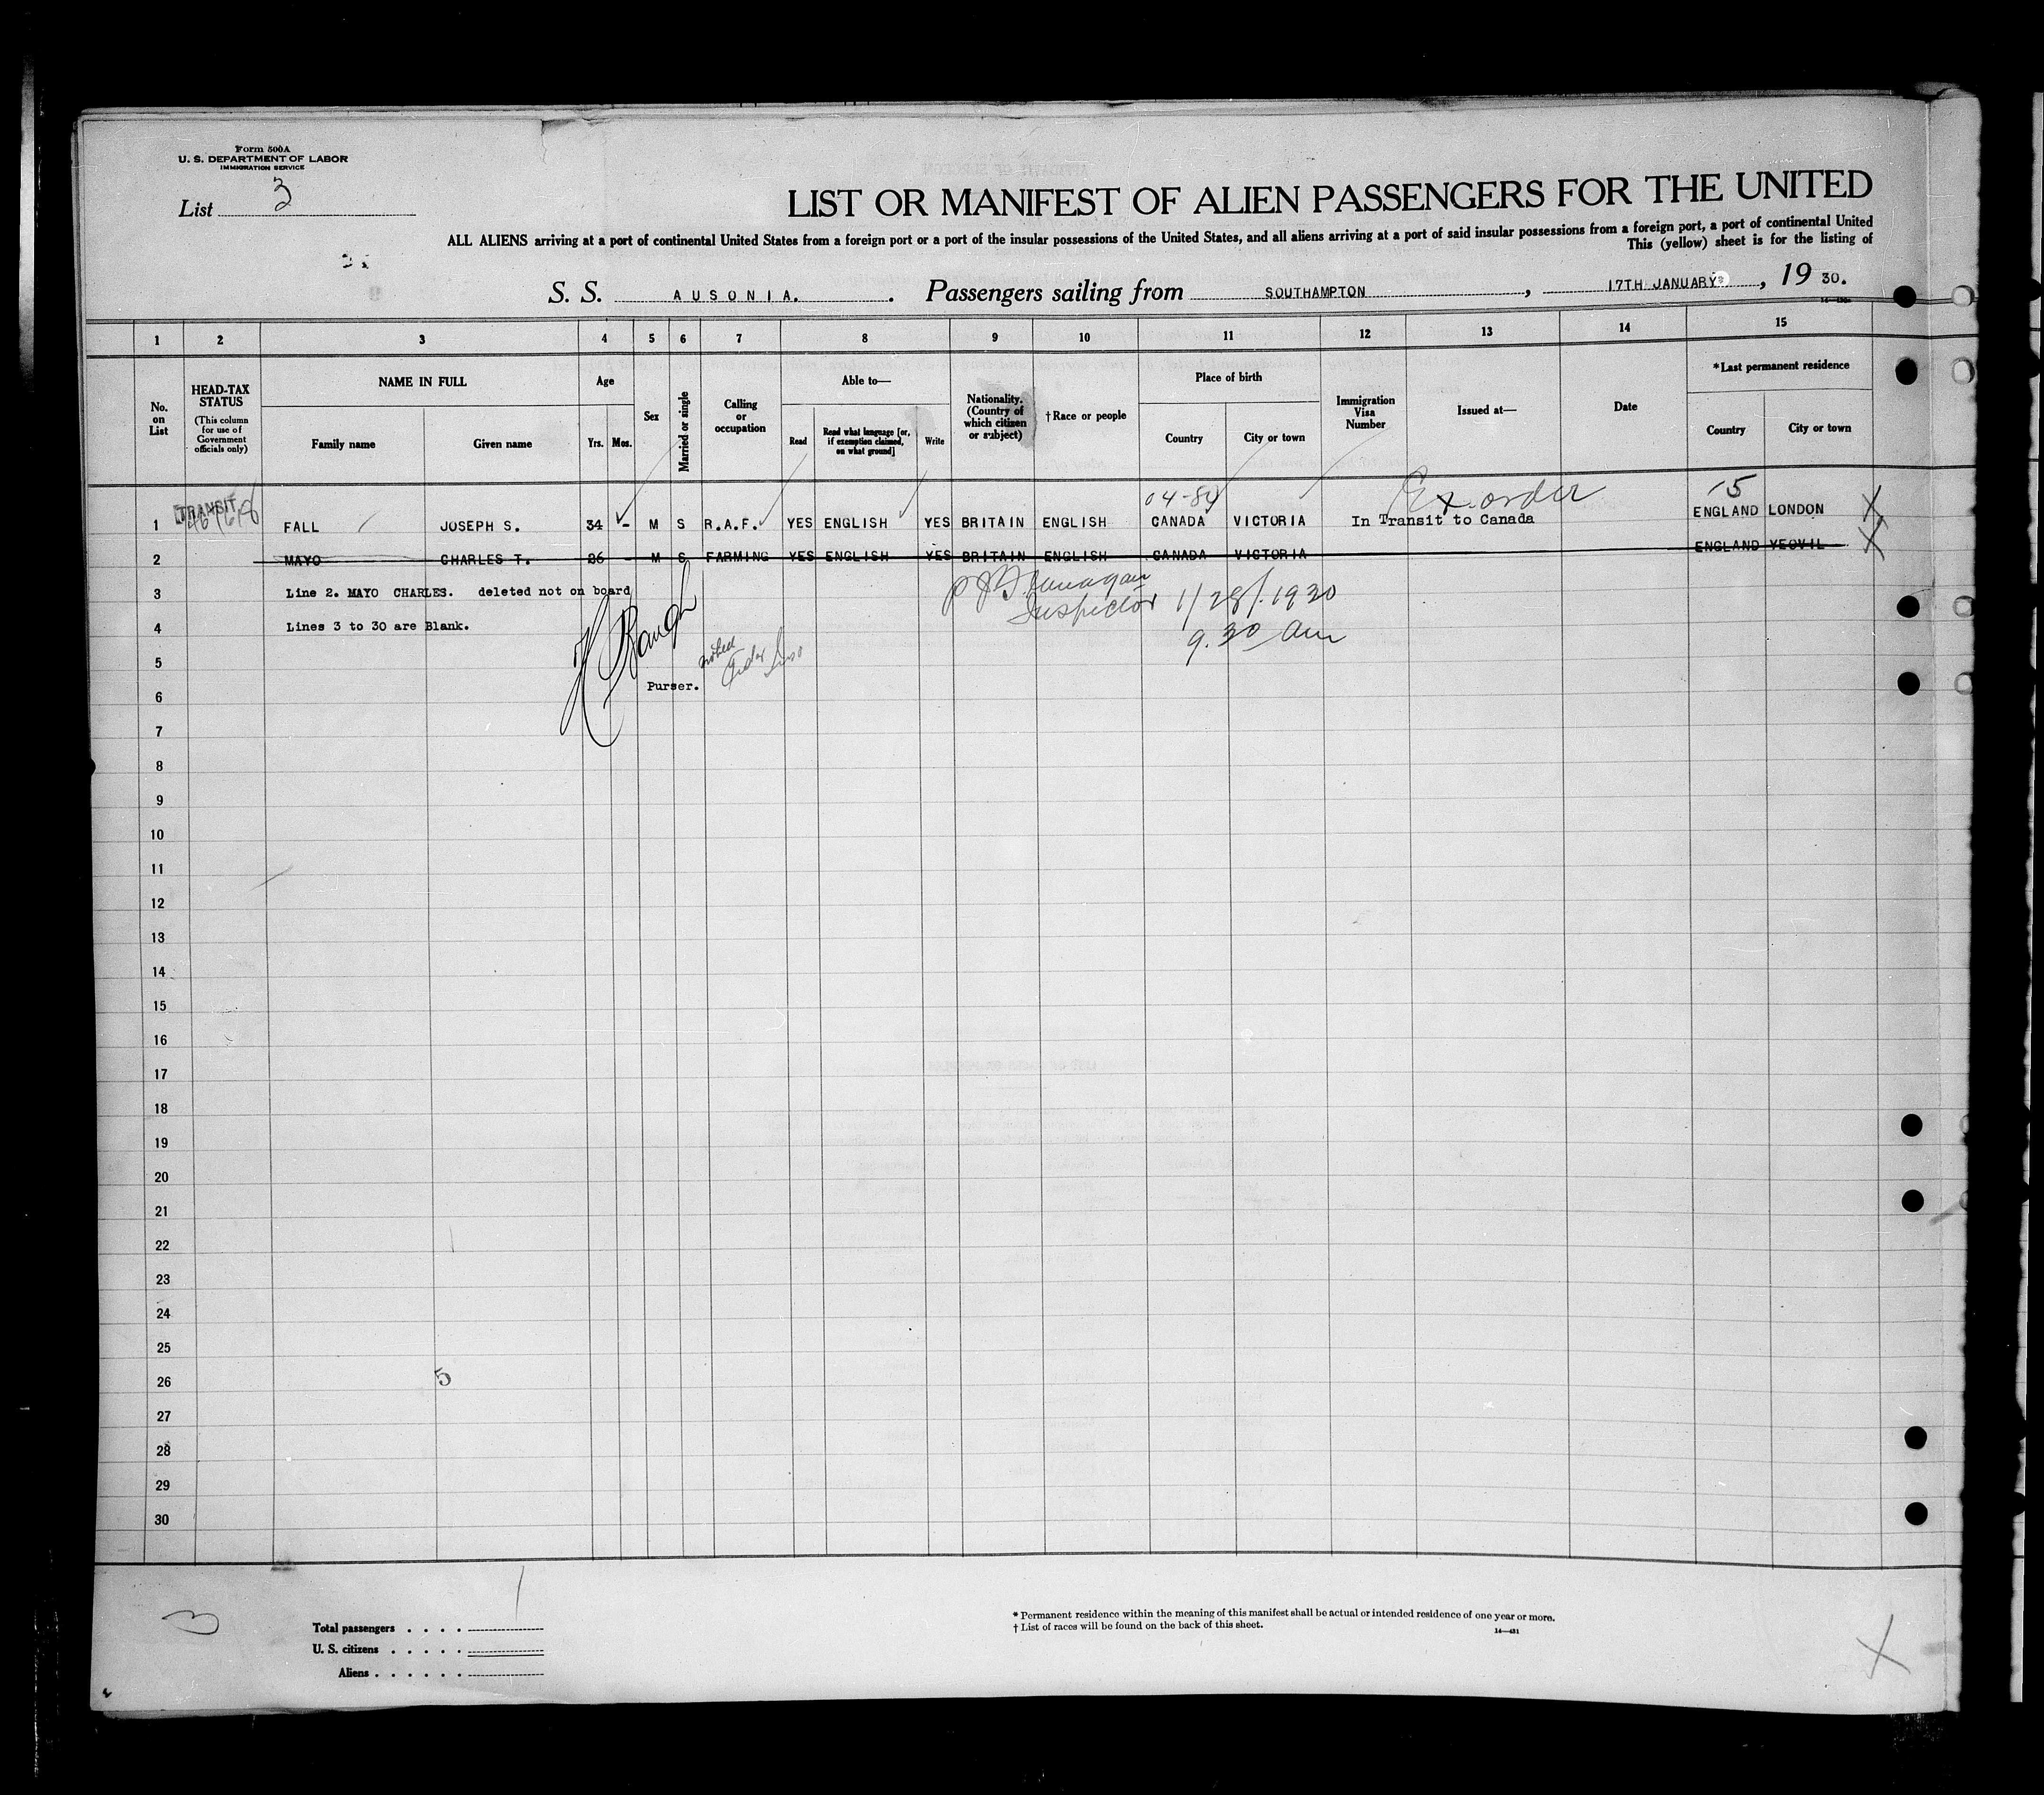 Form 500A
U. S. DEPARTMENT OF LABOR
IMMIGRATION SERVICE
List 3
LIST OR MANIFEST OF ALIEN PASSENGERS FOR THE UNITED
ALL ALIENS arriving at a port of continental United States from a foreign port or a port of the insular possessions of the United States, and all aliens arriving at a port of said insular possessions from a foreign port, a port of continental United
This (yellow) sheet is for the listing of
S. S. AUSONIA. Passengers sailing from SOUTHAMPTON, 17TH JANUARY, 19 30.
1 2 3 4 5 6 7 8 9 10 11 12 13 14 15
No. on List
HEAD-TAX STATUS
(This column for use of Government officials only)
NAME IN FULL
Family name
Given name
Age
Yrs. Mos.
Sex
Married or single
Calling or occupation
Able to—
Read
Read what language [or, if exemption claimed, on what ground]
Write
Nationality. (Country of which citizen or subject)
† Race or people
Place of birth
Country
City or town
Immigration Visa Number
Issued at—
Date
*Last permanent residence
Country
City or town
04-84 Ex. order 15
1 TRANSIT FALL JOSEPH S. 34 - M S R.A.F. YES ENGLISH YES BRITAIN ENGLISH CANADA VICTORIA In Transit to Canada ENGLAND LONDON X
2 MAYO CHARLES T. 26 - M S FARMING YES ENGLISH YES BRITAIN ENGLISH CANADA VICTORIA ENGLAND YEOVIL X
3 Line 2. MAYO CHARLES. deleted not on board
Inspector 1/28/.1930
4 Lines 3 to 30 are Blank.
9.30 am
5
noted
6 Purser.
7
8
9
10
11
12
13
14
15
16
17
18
19
20
21
22
23
24
25
26 5
27
28
29
30
3
Total passengers 1
U. S. citizens
Aliens
* Permanent residence within the meaning of this manifest shall be actual or intended residence of one year or more.
† List of races will be found on the back of this sheet.
14—431
X